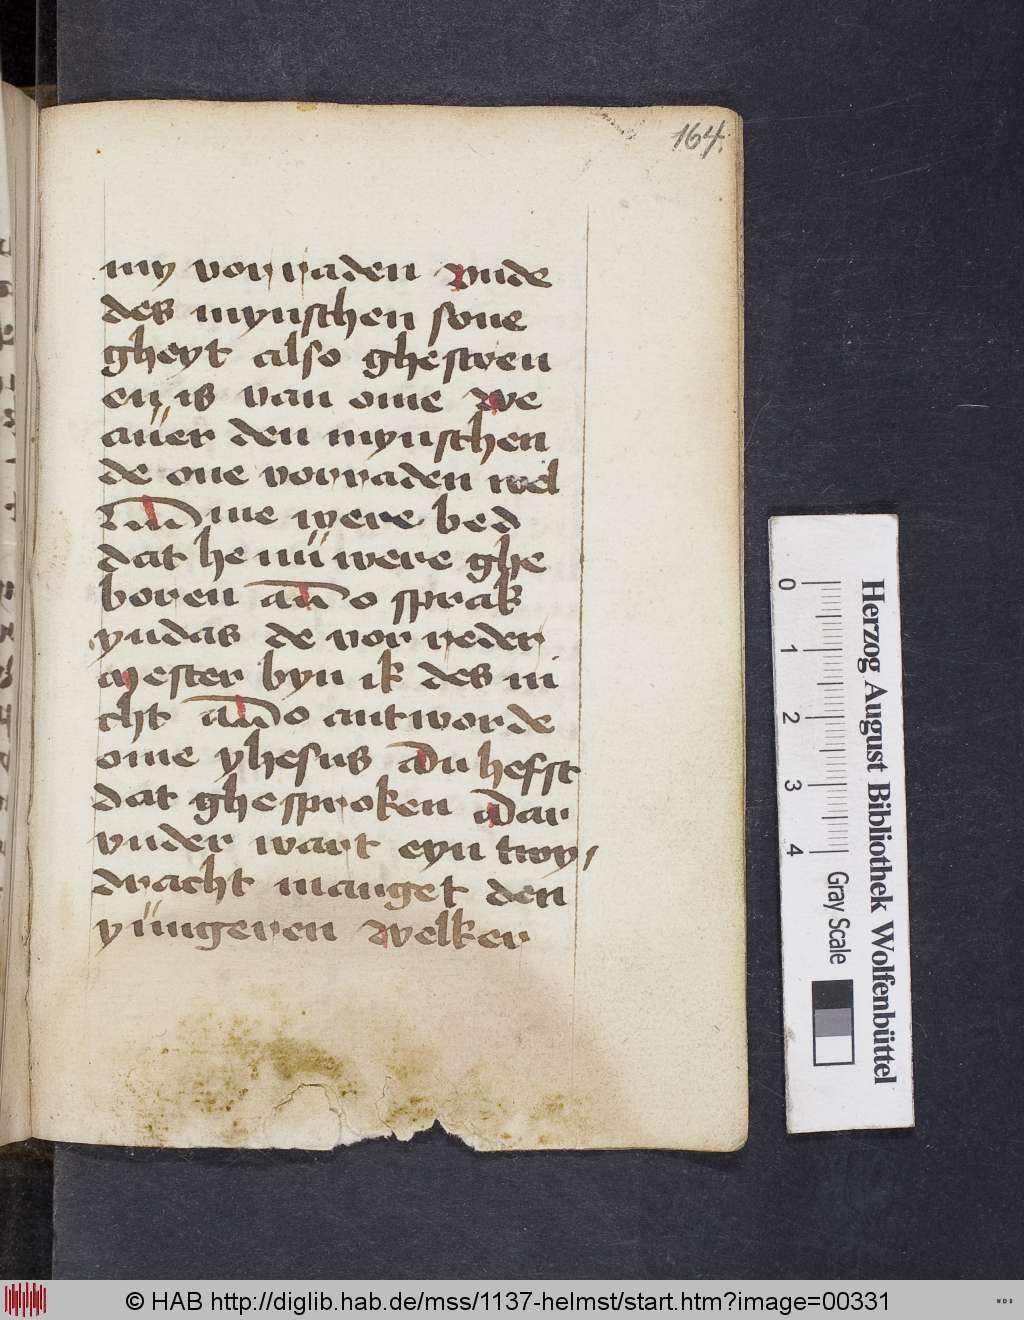 164.
my vorraden vnde
des mynschen sone
gheyt also ghescreuen
en is van ome we
auer den mynschen
de one vorraden wel
me were bed
dat he nü were ghe
boren also sprak
yudas de vor reder
Mester byn ik des ni
cht also antworde
ome yhesus Du hefst
dat ghesproken Dar
vnder wart eyn twy,
dracht manget den
yüngeren Welker
Herzog August Bibliothek Wolfenbüttel
0 1 2 3 4
Gray Scale
© HAB http://diglib.hab.de/mss/1137-helmst/start.htm?image=00331